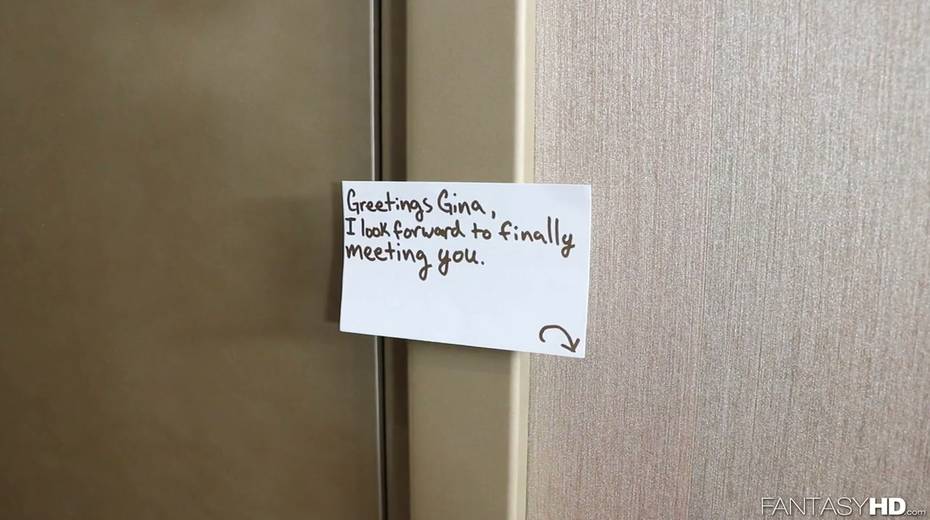 Greetings Gina,
I look forward to finally
meeting you.
FANTASYHD.com